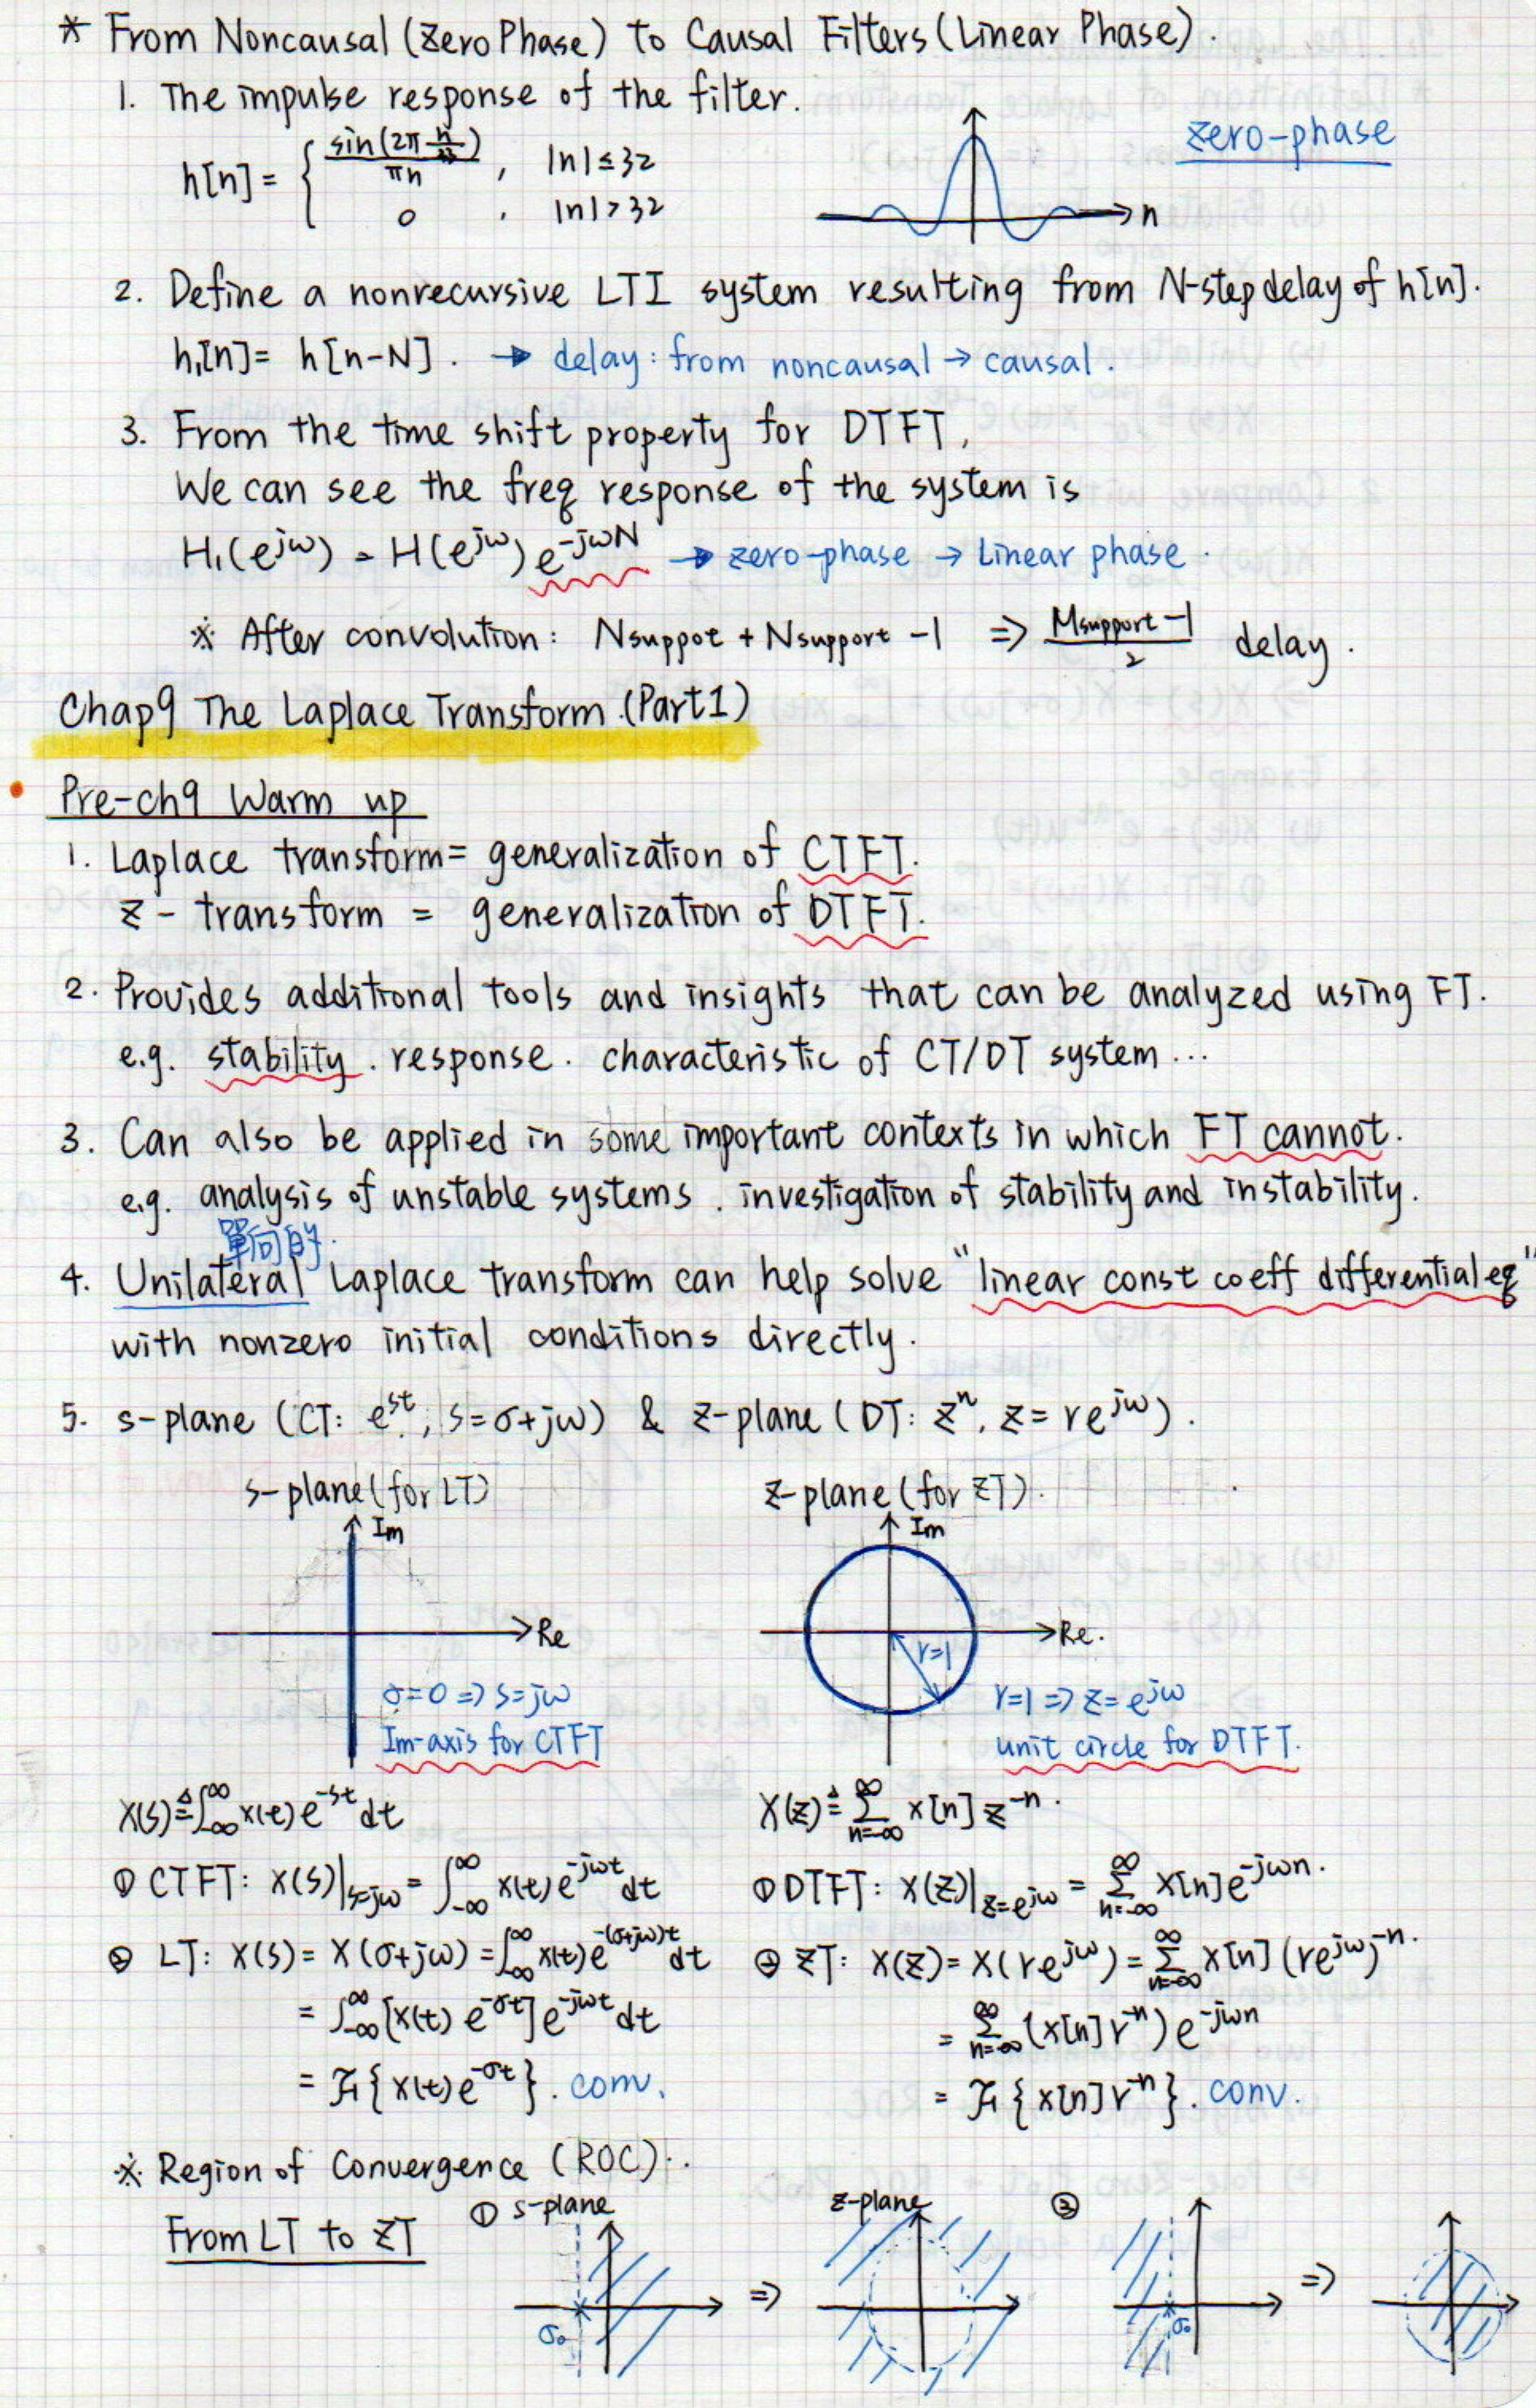 * From Noncausal (Zero Phase) to Causal Filters (Linear Phase).
1. The impulse response of the filter.
zero-phase
h[n] = { sin(2π n/33)/πn , |n| ≤ 32
0 , |n| > 32
n
2. Define a nonrecursive LTI system resulting from N-step delay of h[n].
h₁[n] = h[n-N]. → delay: from noncausal → causal.
3. From the time shift property for DTFT,
We can see the freq response of the system is
H₁(e^{jω}) = H(e^{jω}) e^{-jωN} → zero-phase → Linear phase.
※ After convolution: Nsuppot + Nsupport -1 ⇒ (Msupport-1)/2 delay.
Chap9 The Laplace Transform.(Part1)
Pre-ch9 Warm up
1. Laplace transform = generalization of CTFT.
z-transform = generalization of DTFT.
2. Provides additional tools and insights that can be analyzed using FT.
e.g. stability. response. characteristic of CT/DT system ...
3. Can also be applied in some important contexts in which FT cannot.
e.g. analysis of unstable systems. investigation of stability and instability.
單向的.
4. Unilateral Laplace transform can help solve "linear const coeff differential eq"
with nonzero initial conditions directly.
5. s-plane (CT: e^{st}, s=σ+jω) & z-plane (DT: z^n, z=re^{jω}).
s-plane (for LT)
z-plane (for ZT).
Im
Im
Re
Re.
r=1
σ=0 ⇒ s=jω
Im-axis for CTFT
r=1 ⇒ z=e^{jω}
unit circle for DTFT.
X(s) ≜ ∫_{-∞}^{∞} x(t) e^{-st} dt
X(z) ≜ Σ_{n=-∞}^{∞} x[n] z^{-n}.
① CTFT: X(s)|_{s=jω} = ∫_{-∞}^{∞} x(t) e^{-jωt} dt
① DTFT: X(z)|_{z=e^{jω}} = Σ_{n=-∞}^{∞} x[n] e^{-jωn}.
② LT: X(s) = X(σ+jω) = ∫_{-∞}^{∞} x(t) e^{-(σ+jω)t} dt
= ∫_{-∞}^{∞} [x(t) e^{-σt}] e^{-jωt} dt
= F{x(t) e^{-σt}}. conv.
② ZT: X(z) = X(re^{jω}) = Σ_{n=-∞}^{∞} x[n] (re^{jω})^{-n}.
= Σ_{n=-∞}^{∞} (x[n] r^{-n}) e^{-jωn}
= F{x[n] r^{-n}}. conv.
※ Region of Convergence (ROC).
From LT to ZT
① s-plane
σ₀
⇒
z-plane
②
σ₀
⇒